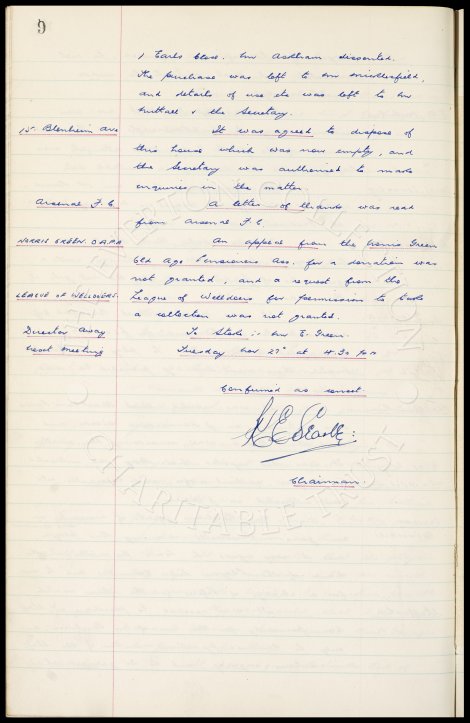 9
1 Earls Close. Mr Askham dissented.
The purchase was left to Mr Micklesfield,
and details of use etc was left to Mr
Nuttall & the Secretary.
15. Blenheim Ave It was agreed to dispose of
this house which was now empty, and
the Secretary was authorised to make
enquiries in the matter.
Arsenal F.C. A letter of thanks was read
from Arsenal F C
NORRIS GREEN. O.A.P.A An appeal from the Norris Green
Old Age Pensioners Ass. for a donation was
not granted, and a request from the
LEAGUE OF WELLDOERS. League of Welldoers for permission to take
a collection was not granted.
Director Away To Stoke :- Mr E. Green.
Next Meeting Tuesday Nov 27" at 4.30 pm
Confirmed as correct.
Chairman.
THE EVERTON COLLECTION
CHARITABLE TRUST